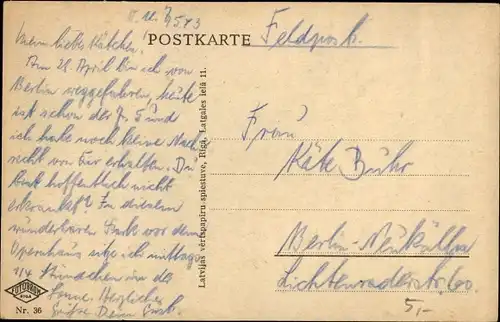 POSTKARTE
Feldpost.
Mein liebes Kätchen!
Am 28. April bin ich von
Berlin weggefahren, heute
ist schon der 7. 5 und
ich habe noch keine Nach-
richt von Dir erhalten. Du
bist hoffentlich nicht
erkrankt? In diesem
wunderbaren Park vor dem
Opernhaus sitze ich mittags
1/4 Stündchen in der
Sonne. Herzliche
Grüße Dein
Latvijas vērtspapīru spiestuve, Rīgā, Latgales ielā 11.
Frau
Käte Buhr
Berlin-Neukölln
Lichtenraderstr. 60.
5,-
RIGA
Nr. 36